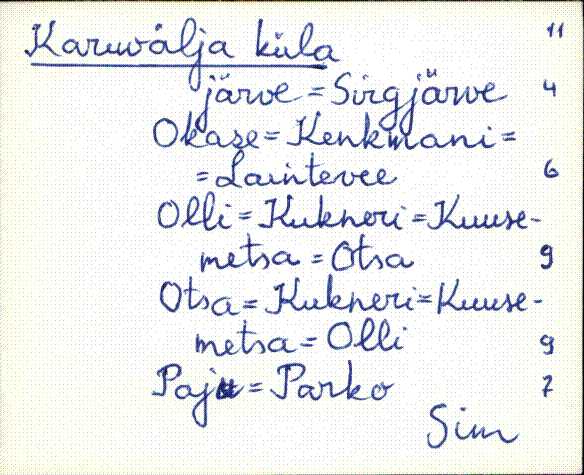 Karuvälja küla 11
järve = Sirgjärve 4
Okase = Kenkmani =
= Laintevee 6
Olli = Kukneri = Kuuse-
metsa = Otsa 9
Otsa = Kukneri = Kuuse-
metsa = Olli 9
Paju = Parko 7
Sim